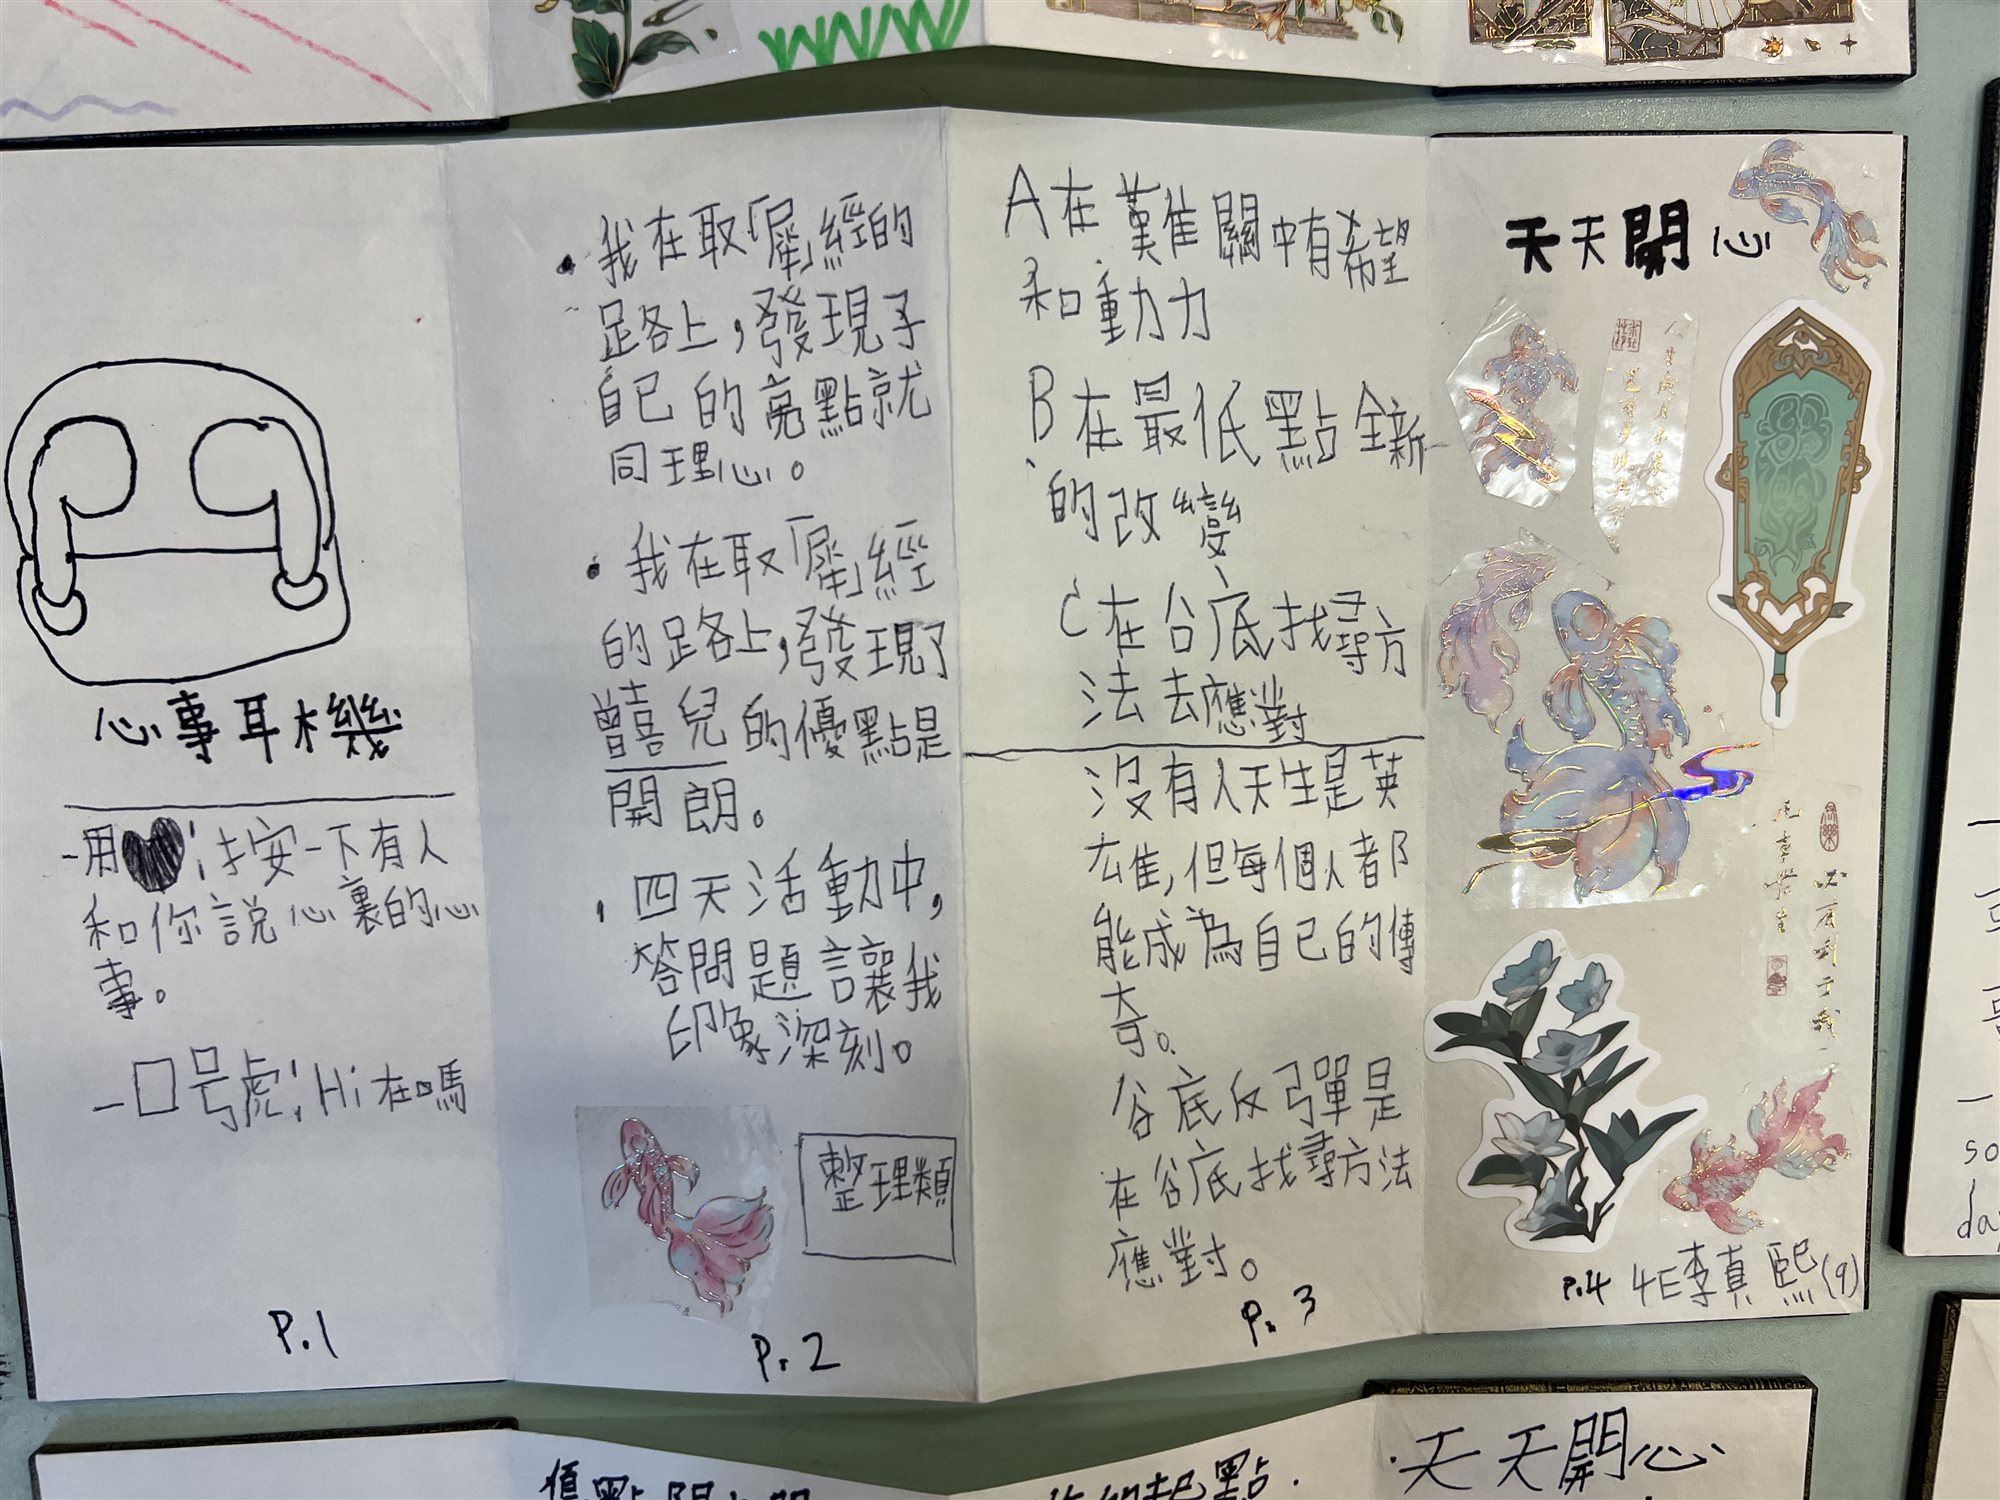 心事耳機
-用♥:按一下有人
和你說心裏的心
事。
-口号虎:Hi在嗎
P.1
•我在取「犀」經的
足路上,發現了
自己的亮點就
同理心。
•我在取「犀」經
的足路上,發現了
曾喜兒的優點是
開朗。
•四天活動中,
答問題讓我
印象深刻。
整理類
P.2
A在難關中有希望
和動力
B在最低點全新
的改變
C在谷底找尋方
法去應對
沒有人天生是英
雄,但每個人都
能成為自己的傳
奇。
谷底反彈是
在谷底找尋方法
應對。
P.3
天天開心
凡事發生
必有利于我
P.4 4E李真熙(9)
天天開心